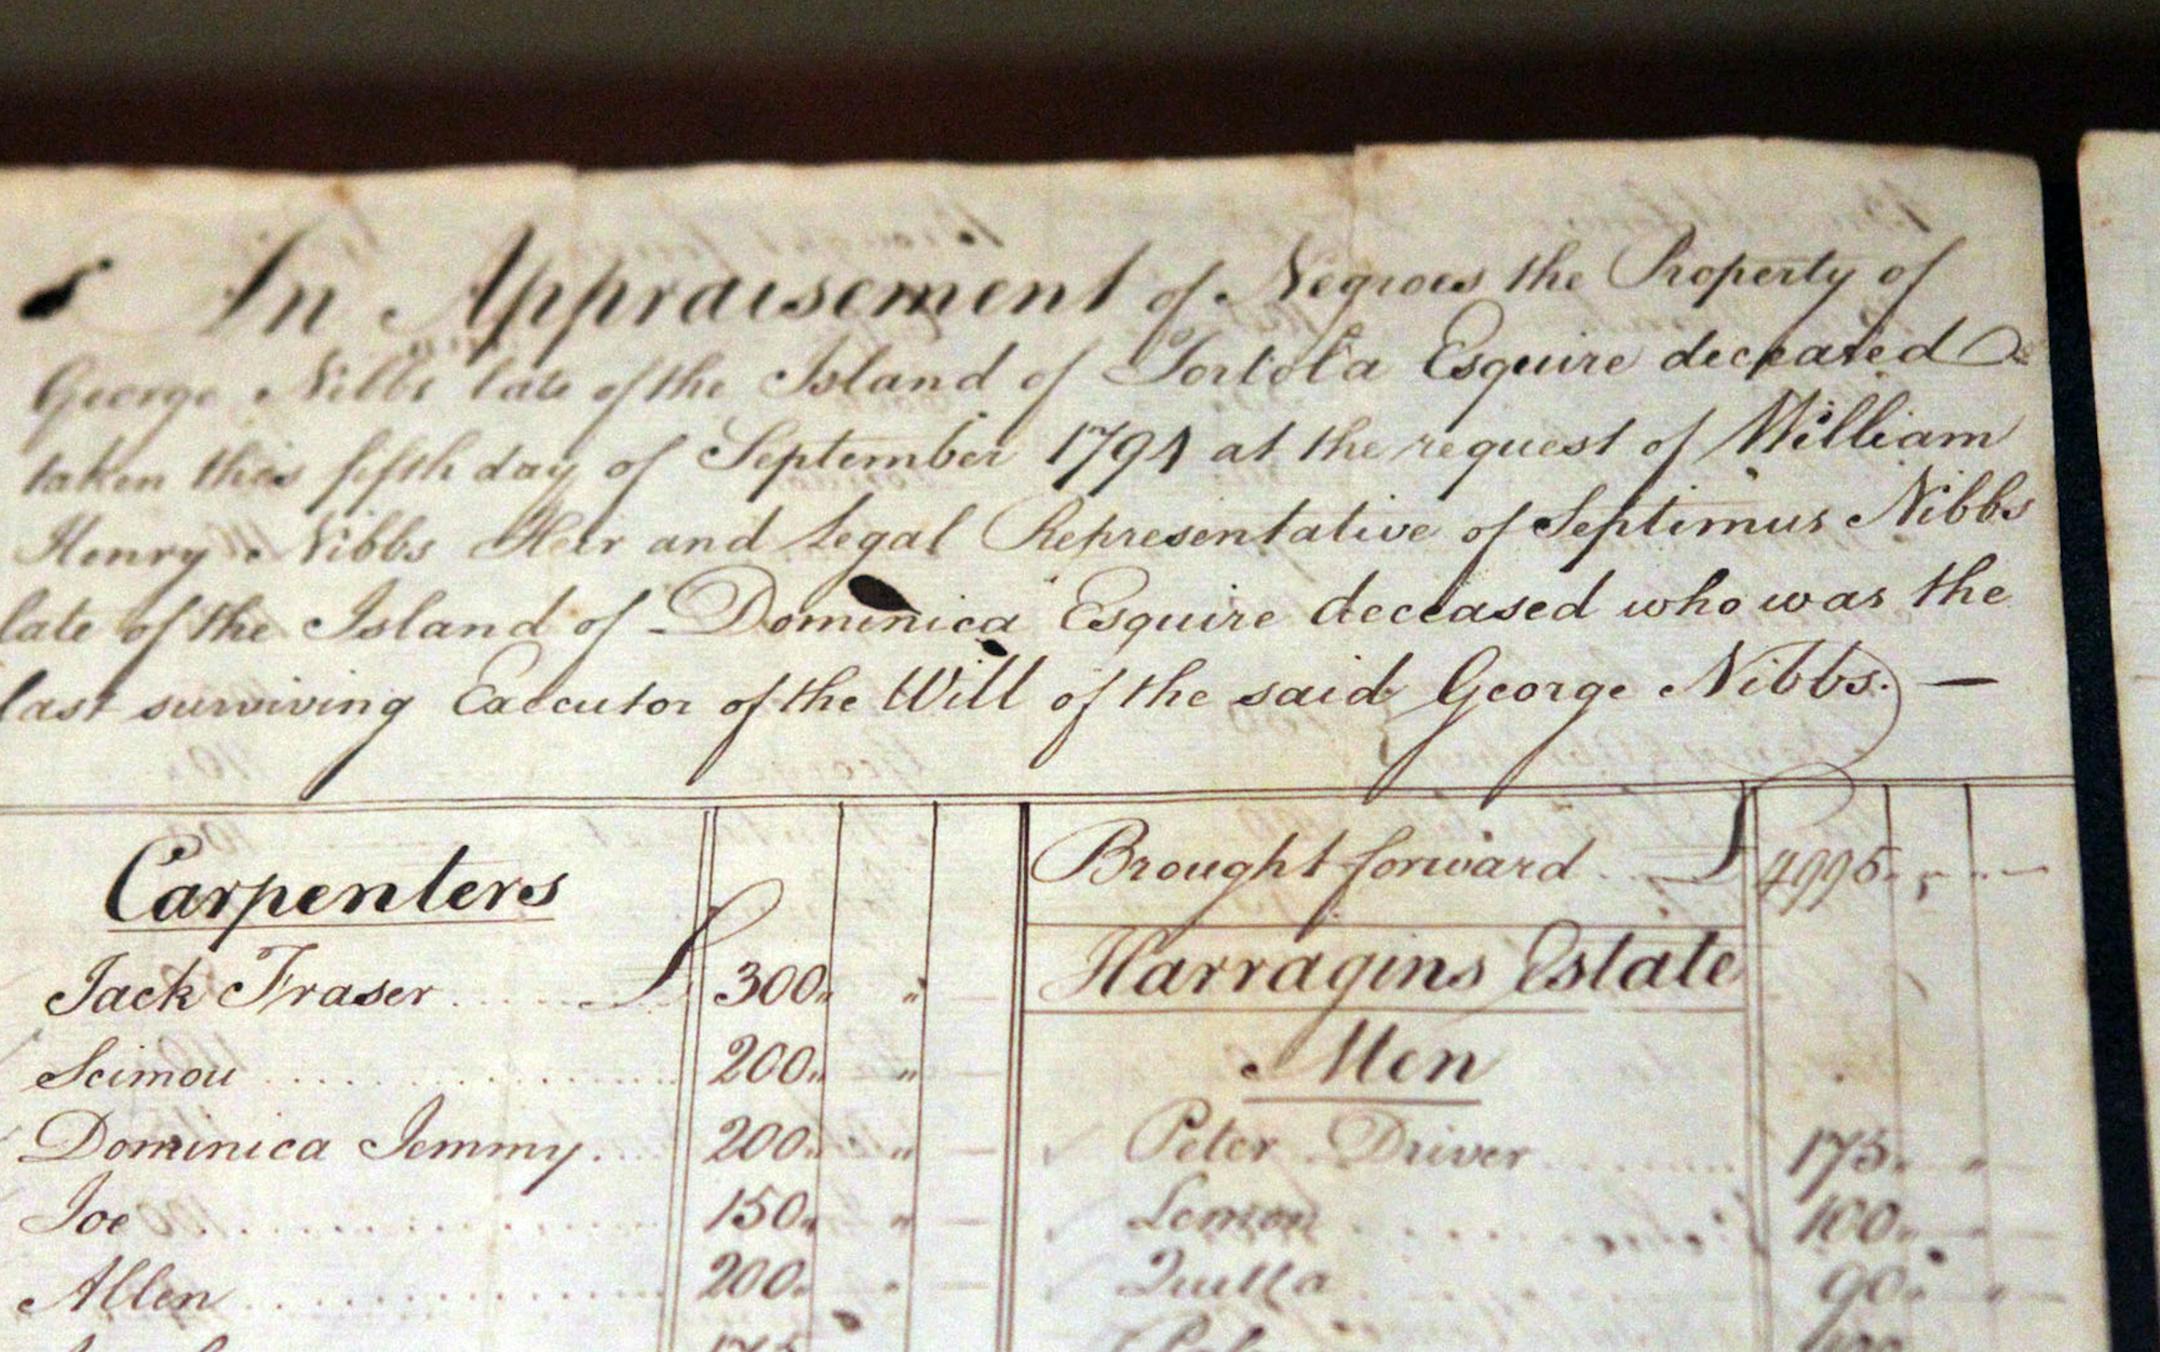 An Appraisement of Negroes the Property of
George Nibbs late of the Island of Tortola Esquire deceased
taken this fifth day of September 1791 at the request of William
Henry Nibbs Heir and Legal Representative of Septimus Nibbs
late of the Island of Dominica Esquire deceased who was the
last surviving Executor of the Will of the said George Nibbs. —
Carpenters
Jack Fraser £ 300 " —
Scimou 200 " —
Dominica Jemmy. 200 " —
Joe 150 " —
Allen 200 " —
175
Brought forward £ 4995 " —
Harragins Estate
Men
Peter Driver 175 "
Lemon 100 " —
Quitta 90 " —